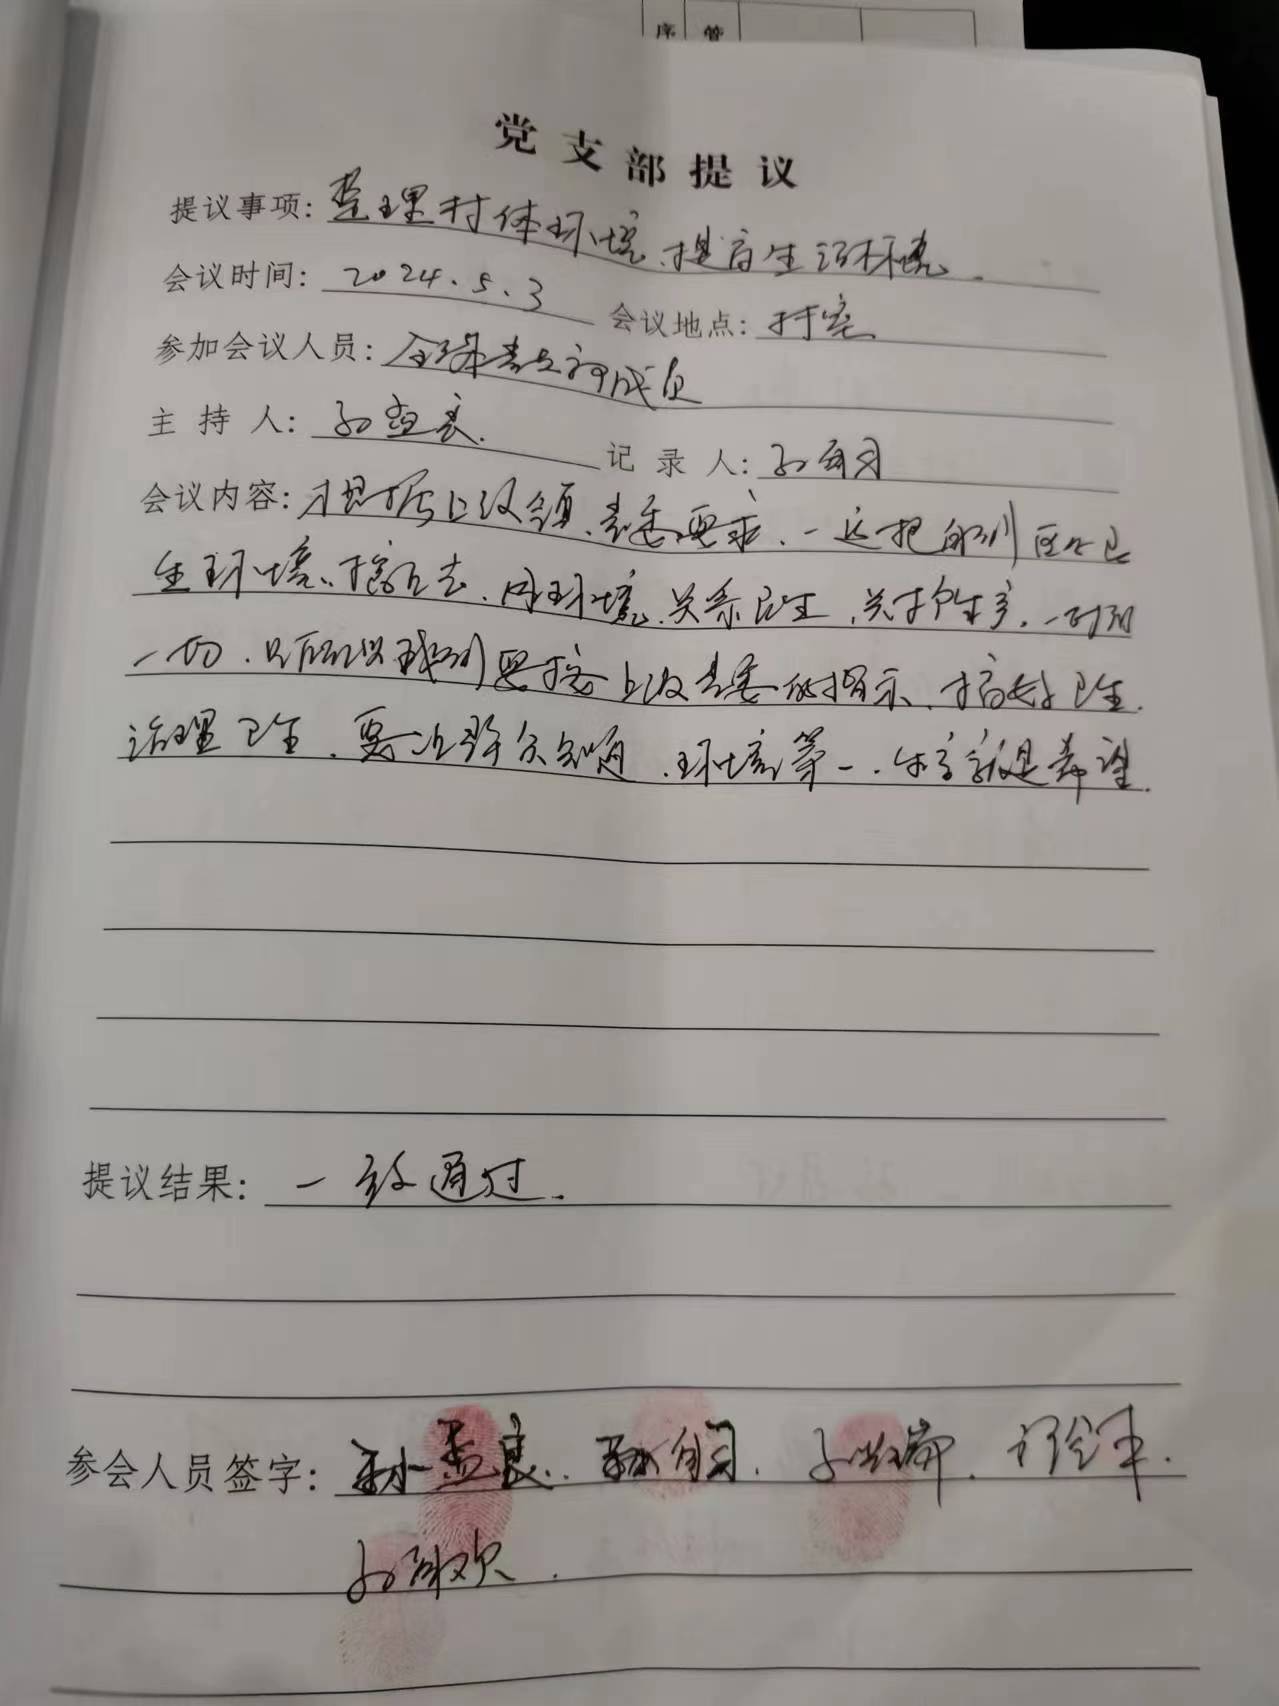 序 管
党支部提议
提议事项: 整理村体环境、提高生活环境.
会议时间: 2024.5.3 会议地点: 村室
参加会议人员: 全体党支部成员
主持人: 孙孟良. 记录人: 孙自习
会议内容: 根据上级镇、党委要求、一定把我们
生环境、搞上去、因环境、关系民生、关护生产、
一切、只所以我们要按上级党委的指示、搞好卫生.
治理卫生、要让群众知道、环境第一、生产就是希望.
提议结果: 一致通过.
参会人员签字: 孙孟良. 孙自习.